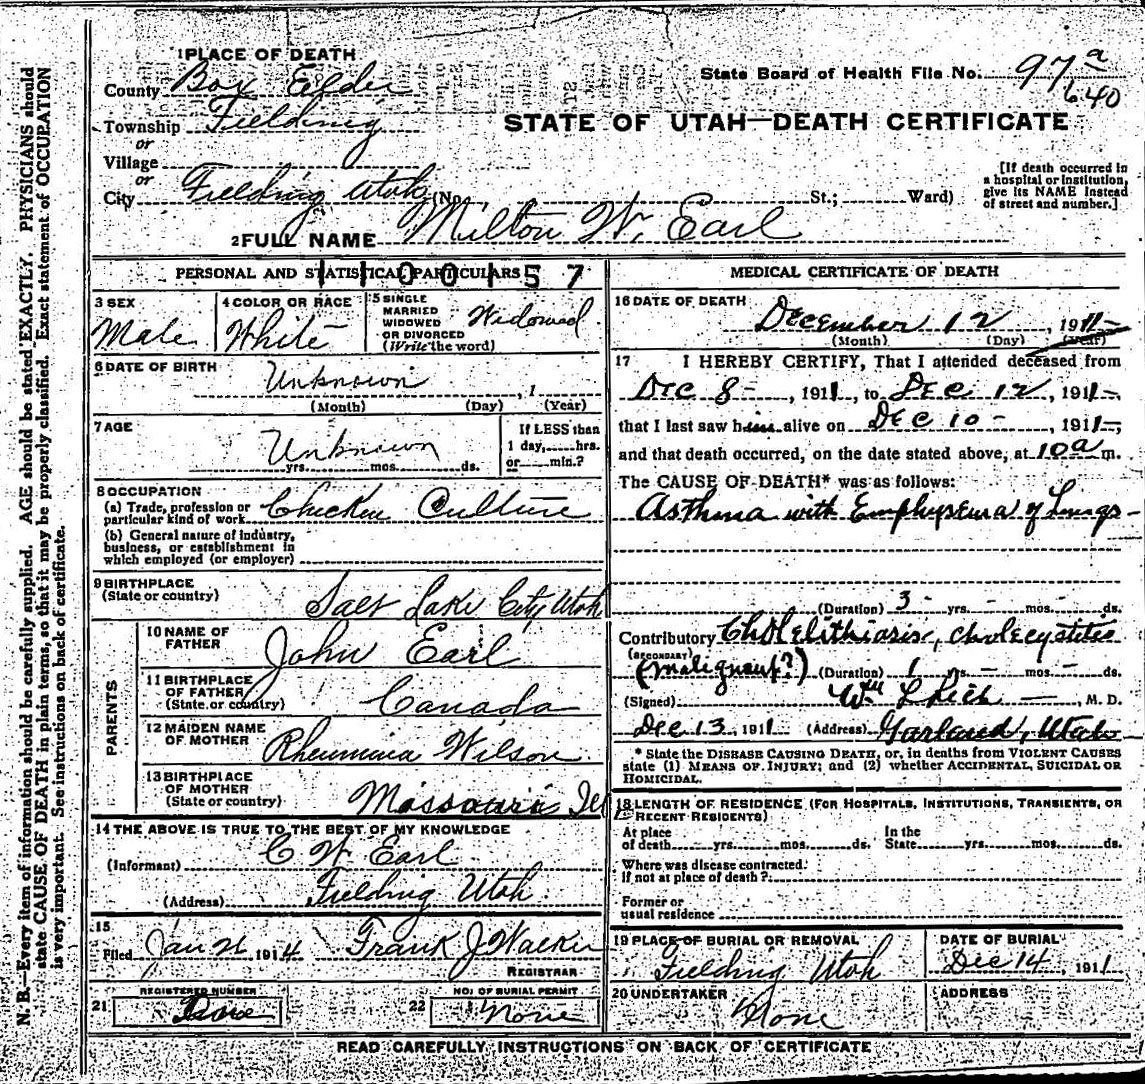 N. B.—Every item of information should be carefully supplied. AGE should be stated EXACTLY. PHYSICIANS should
state CAUSE OF DEATH in plain terms, so that it may be properly classified. Exact statement of OCCUPATION
is very important. See instructions on back of certificate.
1 PLACE OF DEATH
County Box Elder
Township Fielding
or
Village
or
City Fielding Utah (No. St.; Ward)
State Board of Health File No. 97 a
640
STATE OF UTAH—DEATH CERTIFICATE
[If death occurred in
a hospital or institution,
give its NAME instead
of street and number.]
2 FULL NAME Milton W. Earl
PERSONAL AND STATISTICAL PARTICULARS
1100157
3 SEX
Male
4 COLOR OR RACE
White
5 SINGLE
MARRIED
WIDOWED
OR DIVORCED
(Write the word)
Widowed
6 DATE OF BIRTH
Unknown , 1
(Month) (Day) (Year)
7 AGE
Unknown
yrs. mos. ds.
If LESS than
1 day, hrs.
or min.?
8 OCCUPATION
(a) Trade, profession or
particular kind of work Chicken Culture
(b) General nature of industry,
business, or establishment in
which employed (or employer)
9 BIRTHPLACE
(State or country)
Salt Lake City Utah
PARENTS
10 NAME OF
FATHER
John Earl
11 BIRTHPLACE
OF FATHER
(State or country)
Canada
12 MAIDEN NAME
OF MOTHER
Wilson
13 BIRTHPLACE
OF MOTHER
(State or country)
Ill
14 THE ABOVE IS TRUE TO THE BEST OF MY KNOWLEDGE
(Informant) C W Earl
(Address) Fielding Utah
15
Filed Jan 21 1914 Frank J Walker
REGISTRAR
REGISTERED NUMBER
21
NO. OF BURIAL PERMIT
22 None
MEDICAL CERTIFICATE OF DEATH
16 DATE OF DEATH
December 12 , 1911
(Month) (Day) (Year)
17 I HEREBY CERTIFY, That I attended deceased from
Dec 8 - , 1911, to Dec 12 , 1911-,
that I last saw him alive on Dec 10 - 1911-,
and that death occurred, on the date stated above, at 10 a m.
The CAUSE OF DEATH* was as follows:
Asthma with Emphysema of Lungs -
(Duration) 3 - yrs. - mos. - ds.
Contributory Cholelithiasis, cholecystites
(SECONDARY)
(malignant?) (Duration) 1 yrs. - mos. - ds.
(Signed) Wm L Rich — , M. D.
Dec 13, 1911 (Address) Garland, Utah
* State the DISEASE CAUSING DEATH, or, in deaths from VIOLENT CAUSES
state (1) MEANS OF INJURY; and (2) whether ACCIDENTAL, SUICIDAL OR
HOMICIDAL.
18 LENGTH OF RESIDENCE (FOR HOSPITALS, INSTITUTIONS, TRANSIENTS, OR
RECENT RESIDENTS)
At place
of death yrs. mos. ds.
In the
State yrs. mos. ds.
Where was disease contracted.
If not at place of death?
Former or
usual residence
19 PLACE OF BURIAL OR REMOVAL
Fielding Utah
DATE OF BURIAL
Dec 14 , 1911
20 UNDERTAKER
None
ADDRESS
READ CAREFULLY INSTRUCTIONS ON BACK OF CERTIFICATE